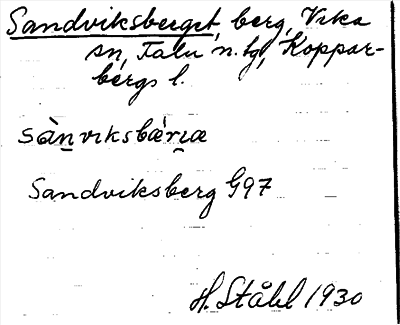 Sandviksberget, berg, Vika
sn, Falu n. tg, Koppar-
bergs l.
sànviksbæ̀rıæ
Sandviksberg G97
H. Ståhl 1930